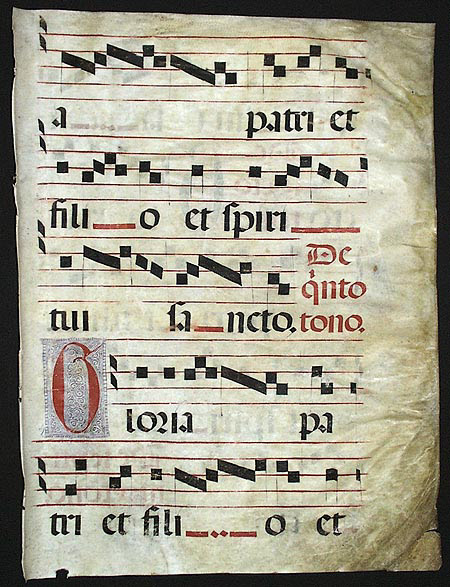 a patri et
fili o et spiri
tui sancto. De
qnto
tono.
Gloria pa
tri et fili o et